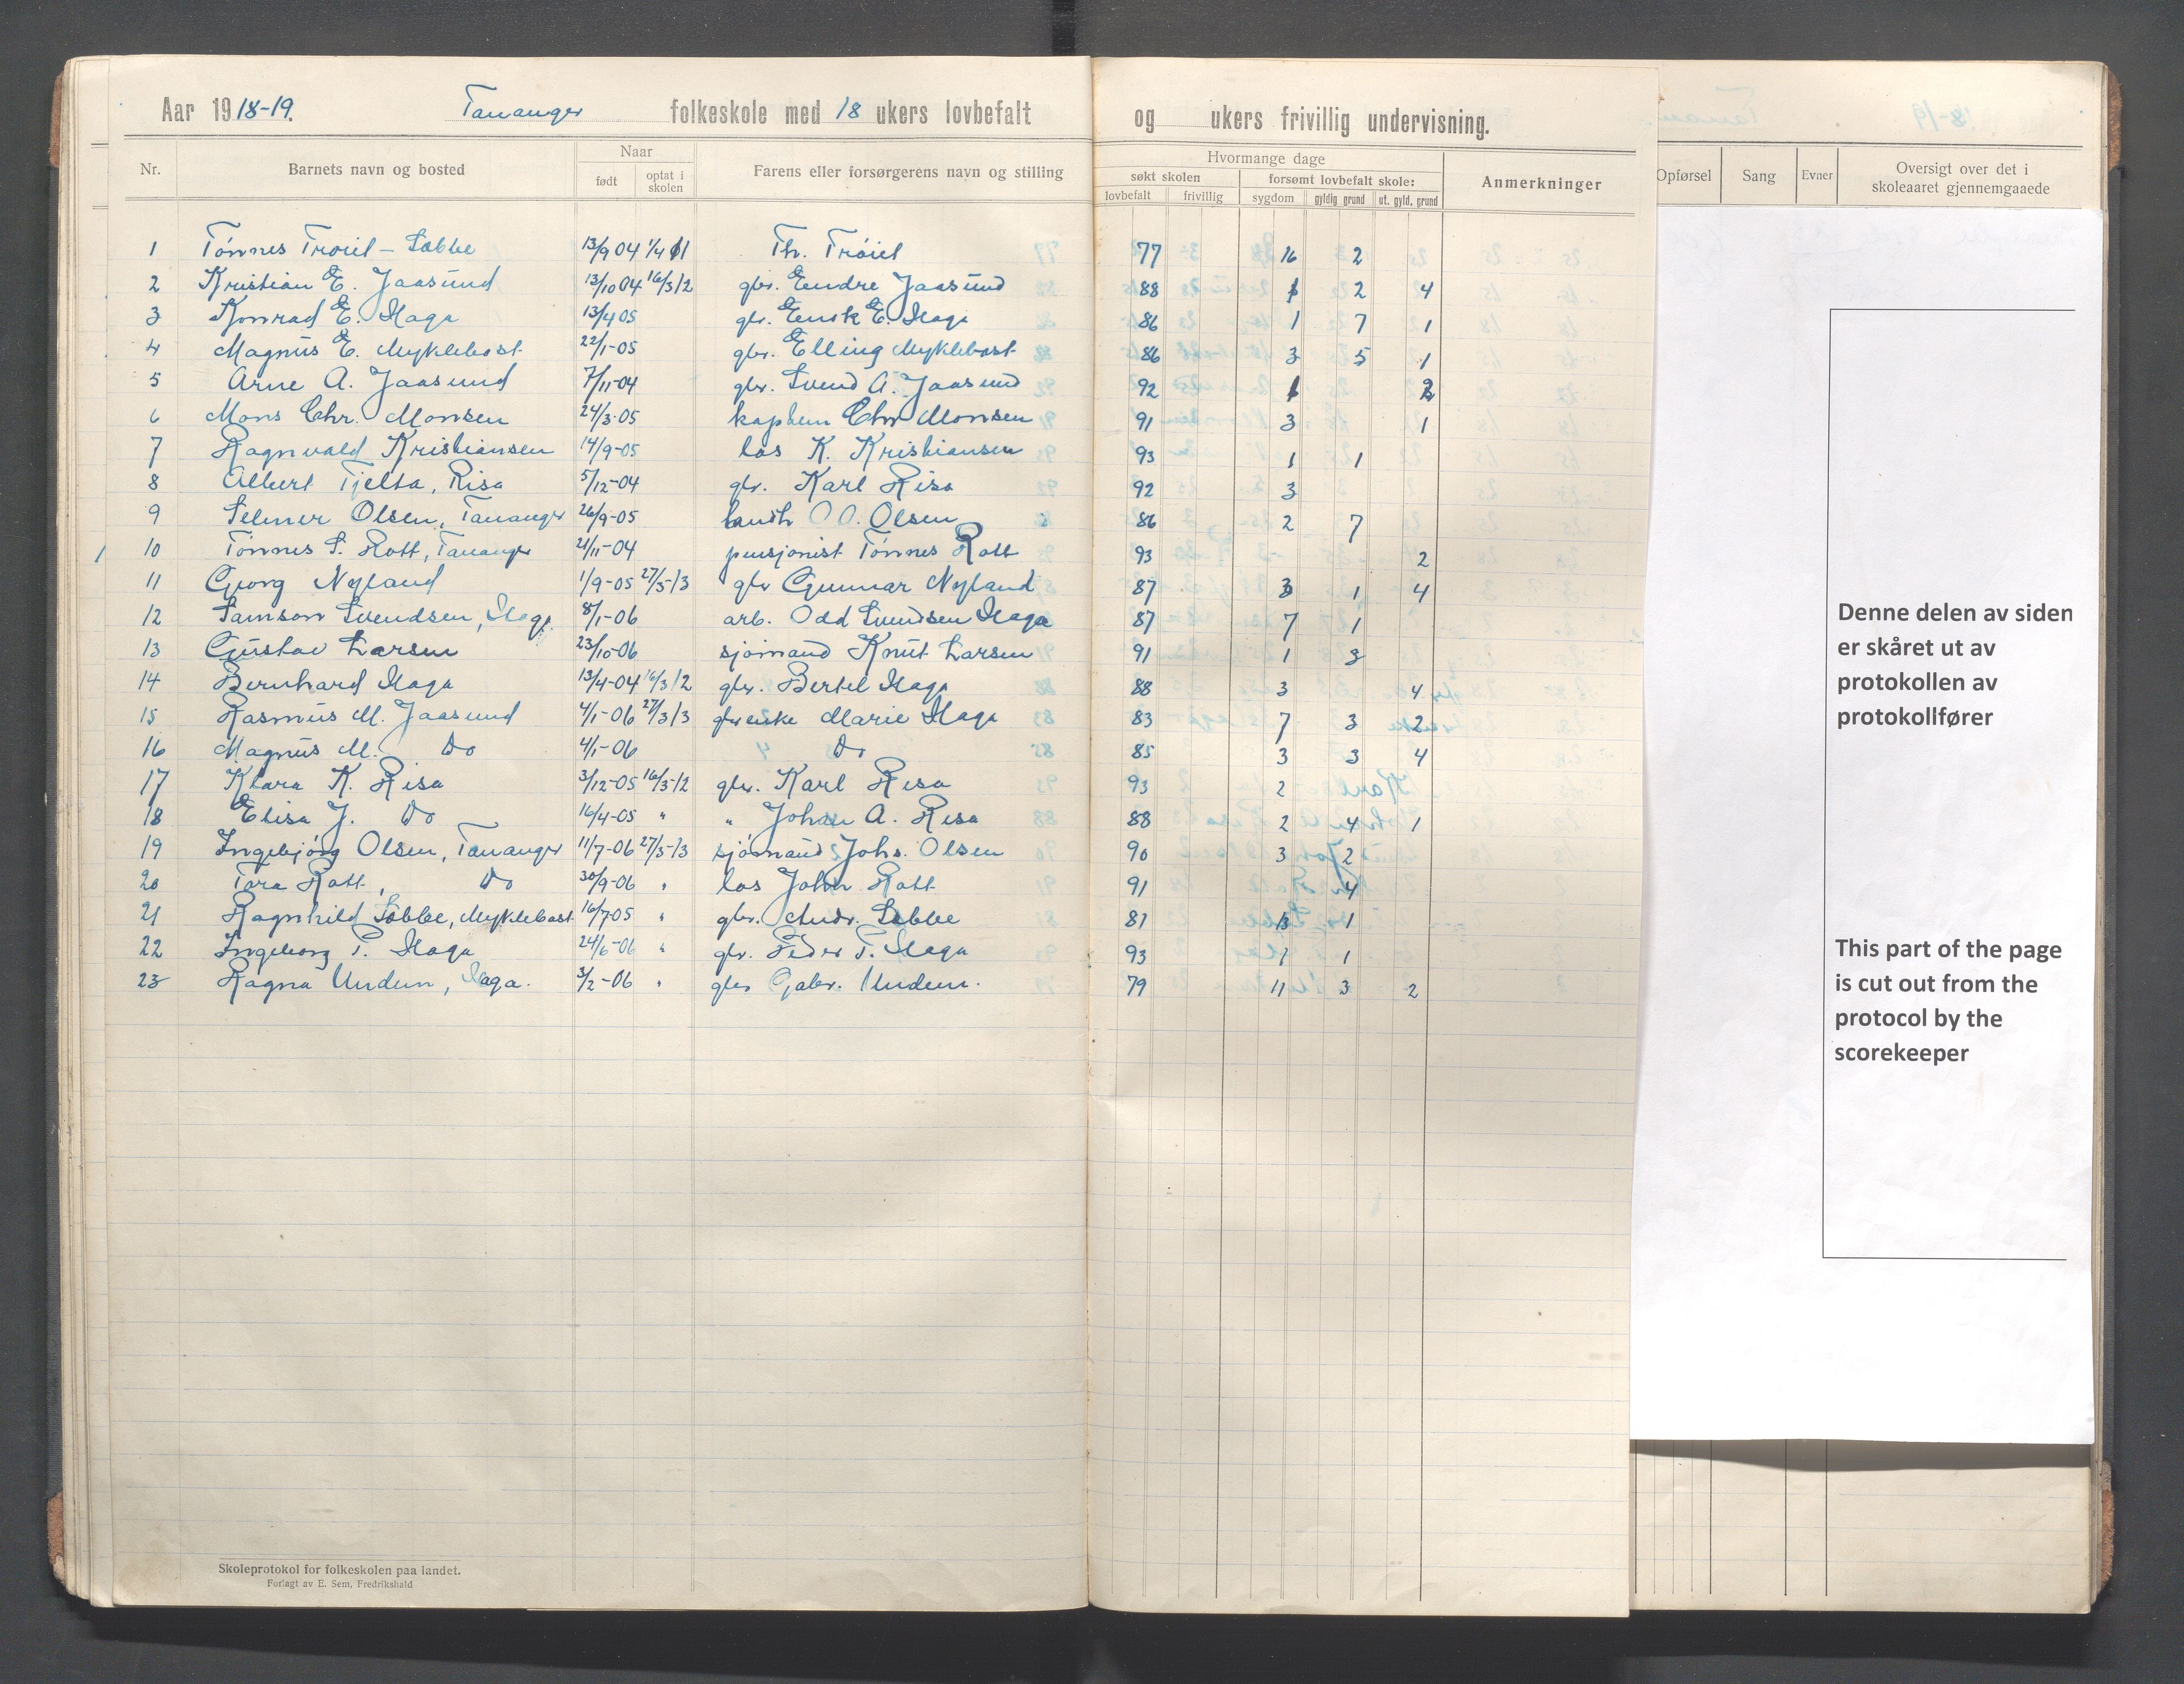 Aar 1918-19. Tananger folkeskole med 18 ukers lovbefalt og ukers frivillig undervisning.
Nr. Barnets navn og bosted Naar født optat i skolen Farens eller forsørgerens navn og stilling Hvormange dage søkt skolen lovbefalt frivillig forsømt lovbefalt skole: sygdom gyldig grund ut. gyld. grund Anmerkninger
Opførsel Sang Evner Oversigt over det i skoleaaret gjennemgaaede
1 Tønnes Trøiel - Sabbe 13/9 04 1/4 11 Th. Trøiel 77 16 2
2 Kristian E. Jaasund 13/10 04 16/3 12 gbr. Endre Jaasund 88 1 2 4
3 Konrad E. Haga 13/4 05 gbr. E. Haga 86 1 7 1
4 Magnus E. Myklebost 22/1-05 gbr. Elling Myklebost 86 3 5 1
5 Arne A. Jaasund 7/11-04 gbr. Svend A. Jaasund 92 1 2
6 Mons Chr. Monsen 24/3-05 kaptein Chr Monsen 91 3 1
7 Ragnvald Kristiansen 14/9-05 los K. Kristiansen 93 1 1
8 Albert Tjelta, Risa 5/12-04 gbr. Karl Risa 92 3
9 Selmer Olsen, Tananger 26/9-05 landh O. Olsen 86 2 7
10 Tønnes S. Rott, Tananger 21/11-04 pensjonist Tønnes Rott 93 2
11 Georg Nyland 1/9-05 27/5-13 gbr Gunnar Nyland 87 3 1 4
12 Samson Svendsen, Haga 8/1-06 arb. Odd Svendsen Haga 87 7 1
13 Gustav Larsen 23/10-06 sjømand Knut Larsen 91 1 3
14 Bernhard Haga 13/4-04 16/3 12 gbr. Bertel Haga 88 3 4
15 Rasmus M. Jaasund 4/1-06 27/3 13 gbr enke Marie Haga 83 7 3 2
16 Magnus M. Do 4/1-06 Do 85 3 3 4
17 Klara K. Risa 3/12-05 16/3-12 gbr. Karl Risa 93 2
18 Elisa J. Do 16/4-05 " " Johan A. Risa 88 2 4 1
19 Ingebjørg Olsen, Tananger 11/7-06 27/5-13 sjømand Johs. Olsen 90 3 2
20 Tora Rott, Do 30/9-06 " los John Rott 91 4
21 Ragnhild Sabbe, Myklebost 16/7-05 " gbr. Andr. Sabbe 81 13 1
22 Ingeborg P. Haga 24/6-06 " gbr. Peder T. Haga 93 1 1
23 Ragna Undem, Haga. 3/2-06 " gbr Gabr. Undem. 79 11 3 2
Denne delen av siden
er skåret ut av
protokollen av
protokollfører
This part of the page
is cut out from the
protocol by the
scorekeeper
Skoleprotokol for folkeskolen paa landet.
Forlagt av E. Sem, Fredrikshald